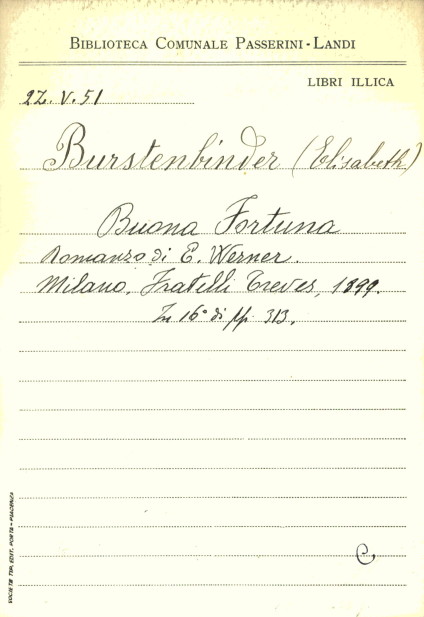 BIBLIOTECA COMUNALE PASSERINI-LANDI
LIBRI ILLICA
2Z.V.51
Burstenbinder (Elisabeth)
Buona Fortuna
Romanzo di E. Werner.
Milano, Fratelli Treves, 1899.
In 16° di pp. 313.
C
SOCIETÀ TIP. EDIT. PORTA - PIACENZA